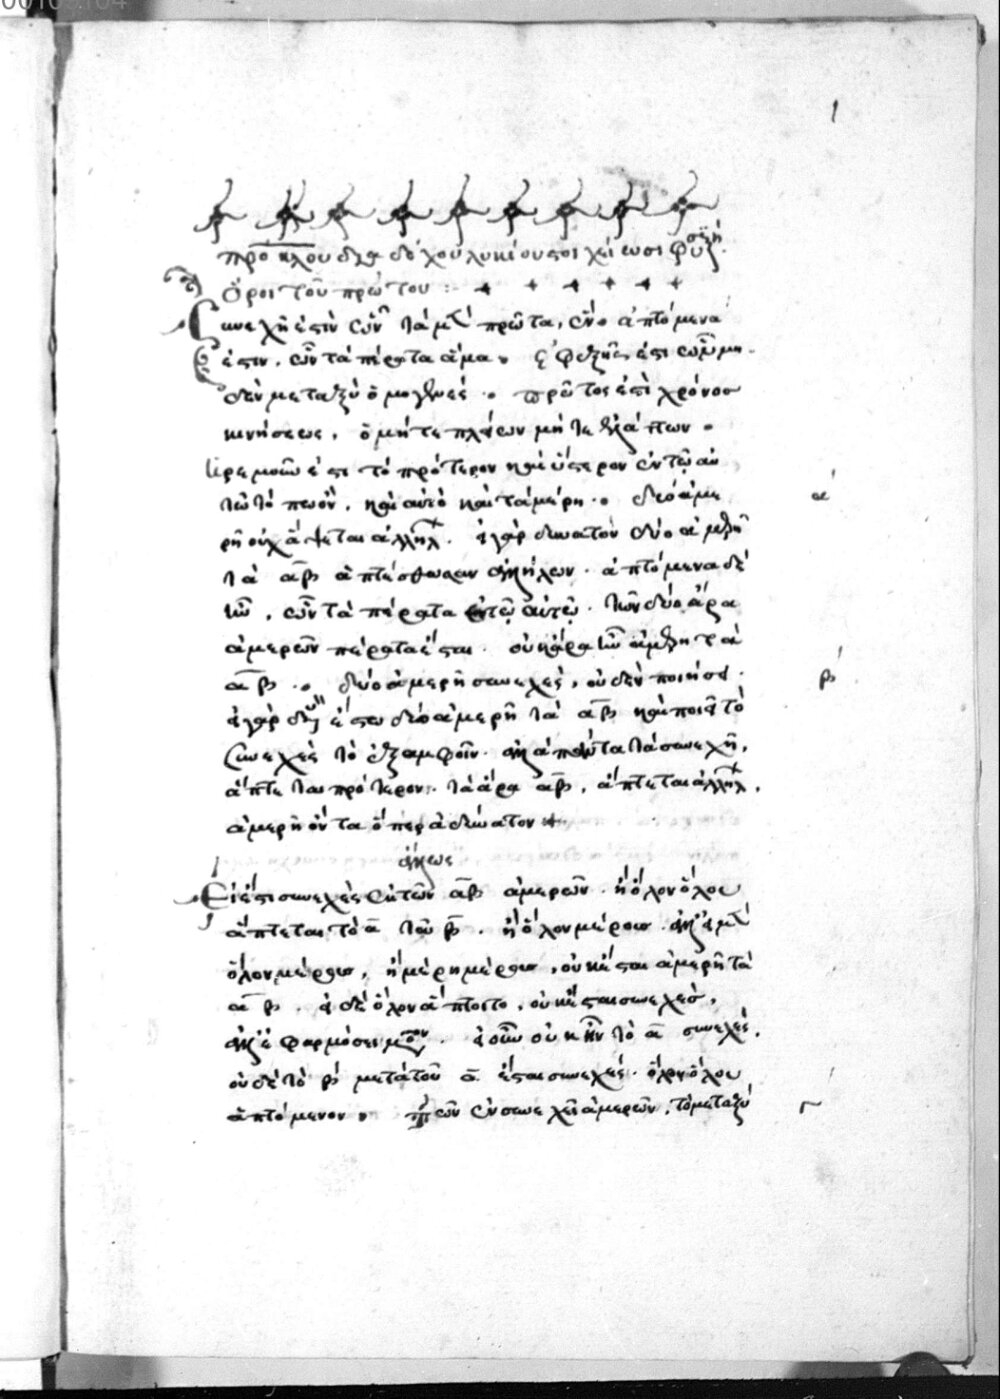 1
πρόκλου διαδόχου λυκίου στοιχείωσις φυσική
Ὅροι τοῦ πρώτου :
Συνεχῆ ἐστὶν ὧν τὰ πέρατα ἕν. ἁπτόμενα
ἐστιν, ὧν τὰ πέρατα ἅμα. ἐφεξῆς ἐστι ὧν μη-
δὲν μεταξὺ ὁμογενές. πρῶτος ἐστὶ χρόνος
κινήσεως, ὁ μήτε πλείων μήτε ἐλάττων.
ἠρεμοῦν ἐστι τὸ πρότερον καὶ ὕστερον ἐν τῷ αὐ
τῷ τόπῳ ὄν, καὶ αὐτὸ καὶ τὰ μέρη. δύο ἀμε α
ρῆ οὐχ ἅψεται ἀλλήλων. εἰ γὰρ δυνατὸν δύο ἀμερῆ
τὰ αβ ἁπτέσθωσαν ἀλλήλων. ἁπτόμενα δὲ
ἦν, ὧν τὰ πέρατα ἐν τῷ αὐτῷ. τῶν δύο ἄρα
ἀμερῶν πέρατα ἔσται. οὐκ ἄρα ἦν ἀμερῆ τὰ
αβ. δύο ἀμερῆ συνεχὲς, οὐδὲν ποιήσει. β
εἰ γὰρ δυνατὸν ἔστω δύο ἀμερῆ τὰ αβ καὶ ποιεῖ τὸ
συνεχὲς τὸ ἐξ ἀμφοῖν. ἀλλὰ πάντα τὰ συνεχῆ,
ἅπτεται πρότερον. τὰ ἄρα αβ, ἅπτεται ἀλλήλων,
ἀμερῆ ὄντα ὅπερ ἀδύνατον
ἄλλως
Εἰ ἔστι συνεχὲς ἐκ τῶν αβ ἀμερῶν. ἢ ὅλον ὅλου
ἅπτεται τὸ α τοῦ β. ἢ ὅλον μέρους. ἀλλ' εἰ μὲν
ὅλον μέρους, ἢ μέρη μέρους, οὐκ ἔσται ἀμερῆ τὰ
αβ. εἰ δὲ ὅλον ἅπτοιτο, οὐκ ἔσται συνεχὲς,
ἀλλ' ἐφαρμόσει μόνον. εἰ οὖν οὐκ ἦν τὸ α συνεχὲς,
οὐδὲ τὸ β μετὰ τοῦ α ἔσται συνεχὲς. ὅλον ὅλου
ἁπτόμενον. τῶν ἐν συνεχεῖ ἀμερῶν, τὸ μεταξὺ γ